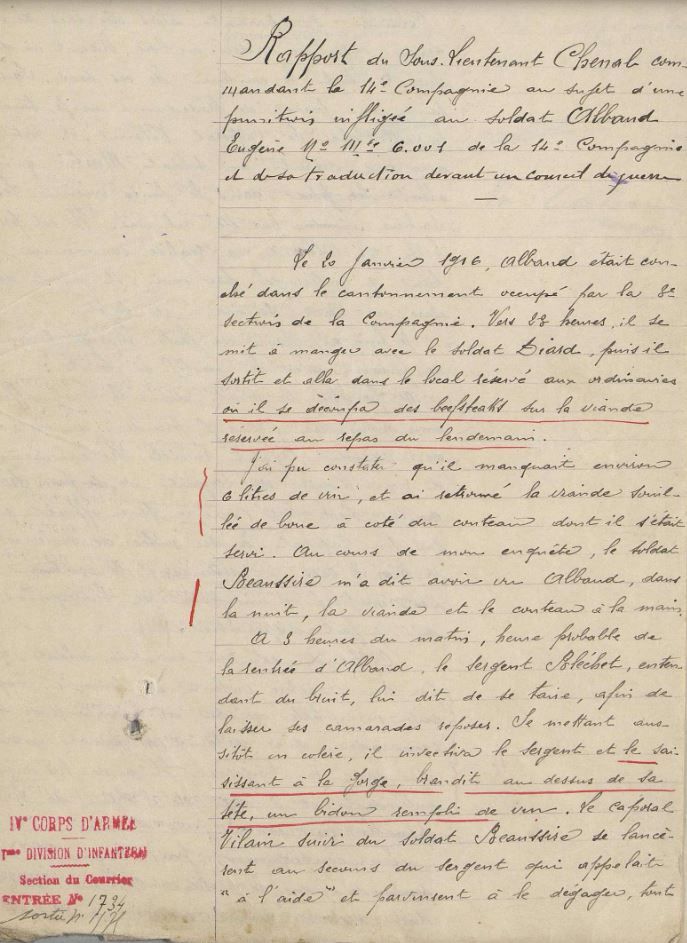 Rapport du Sous-Lieutenant Chenal com-
mandant le 14e Compagnie au sujet d'une
punition infligée au soldat Alband
Eugène No Mle 6.001 de la 14e Compagnie
et de sa traduction devant un conseil de guerre
Le 20 Janvier 1916, Alband était con-
dans le cantonnement occupé par la 3e
section de la Compagnie. Vers 22 heures, il se
mit à manger avec le soldat Diard, puis il
sortit et alla dans le local réservé aux ordinaires
où il se découpa des beefsteaks sur la viande
réservée au repas du lendemain.
J'ai pu constater qu'il manquait environ
6 litres de vin, et ai retrouvé la viande souil-
lée de boue à coté du couteau dont il s'était
servi. Au cours de mon enquête, le soldat
Beaussire m'a dit avoir vu Alband, dans
la nuit, la viande et le couteau à la main.
A 3 heures du matin, heure probable de
la rentrée d'Alband, le sergent Bléchet, enten-
dant du bruit, lui dit de se taire, afin de
laisser ses camarades reposer. Se mettant aus-
sitôt en colère, il invectiva le sergent et le sai-
sissant à la gorge, brandit au dessus de sa
tête, un bidon rempli de vin. Le caporal
Vilain suivi du soldat Beaussire se lancè-
rent au secours du sergent qui appelait
"à l'aide" et parvinrent à le dégager, tout
IVe CORPS D'ARMÉE
7me DIVISION D'INFANTERIE
Section du Courrier
ENTRÉE No 1734
sortie No